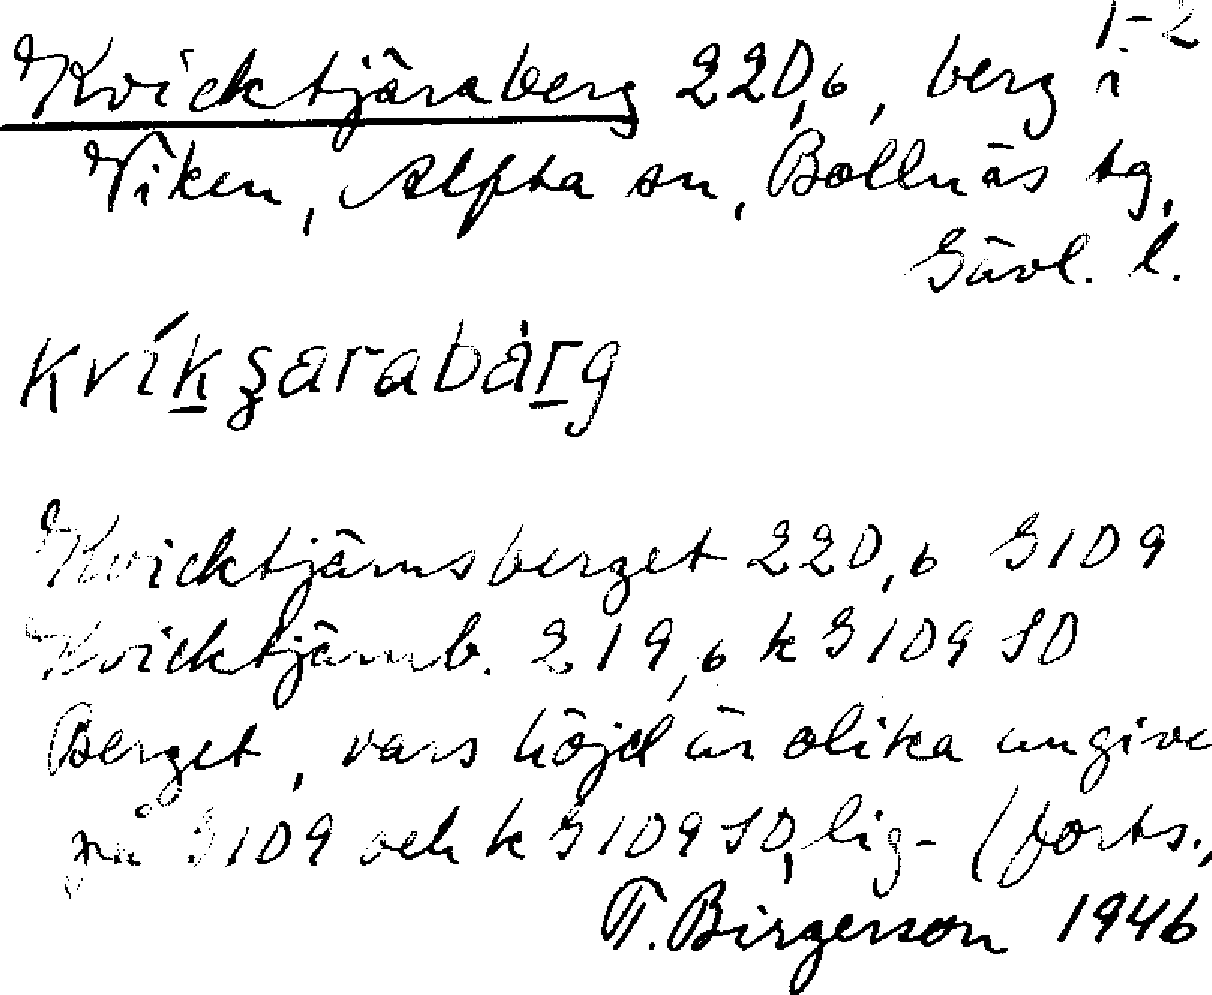 1-2
Kvicktjäraberg 220,6, berg i
Viken, Alfta sn, Bollnäs tg,
Gävl. l.
kvíkʂarabàrg
Kvicktjärnsberget 220,6 G109
Kvicktjärnb. 219,6 k G109 SO
Berget, vars höjd är olika angive
på G109 och k G109 SO, lig- (forts.,
T. Birgerson 1946